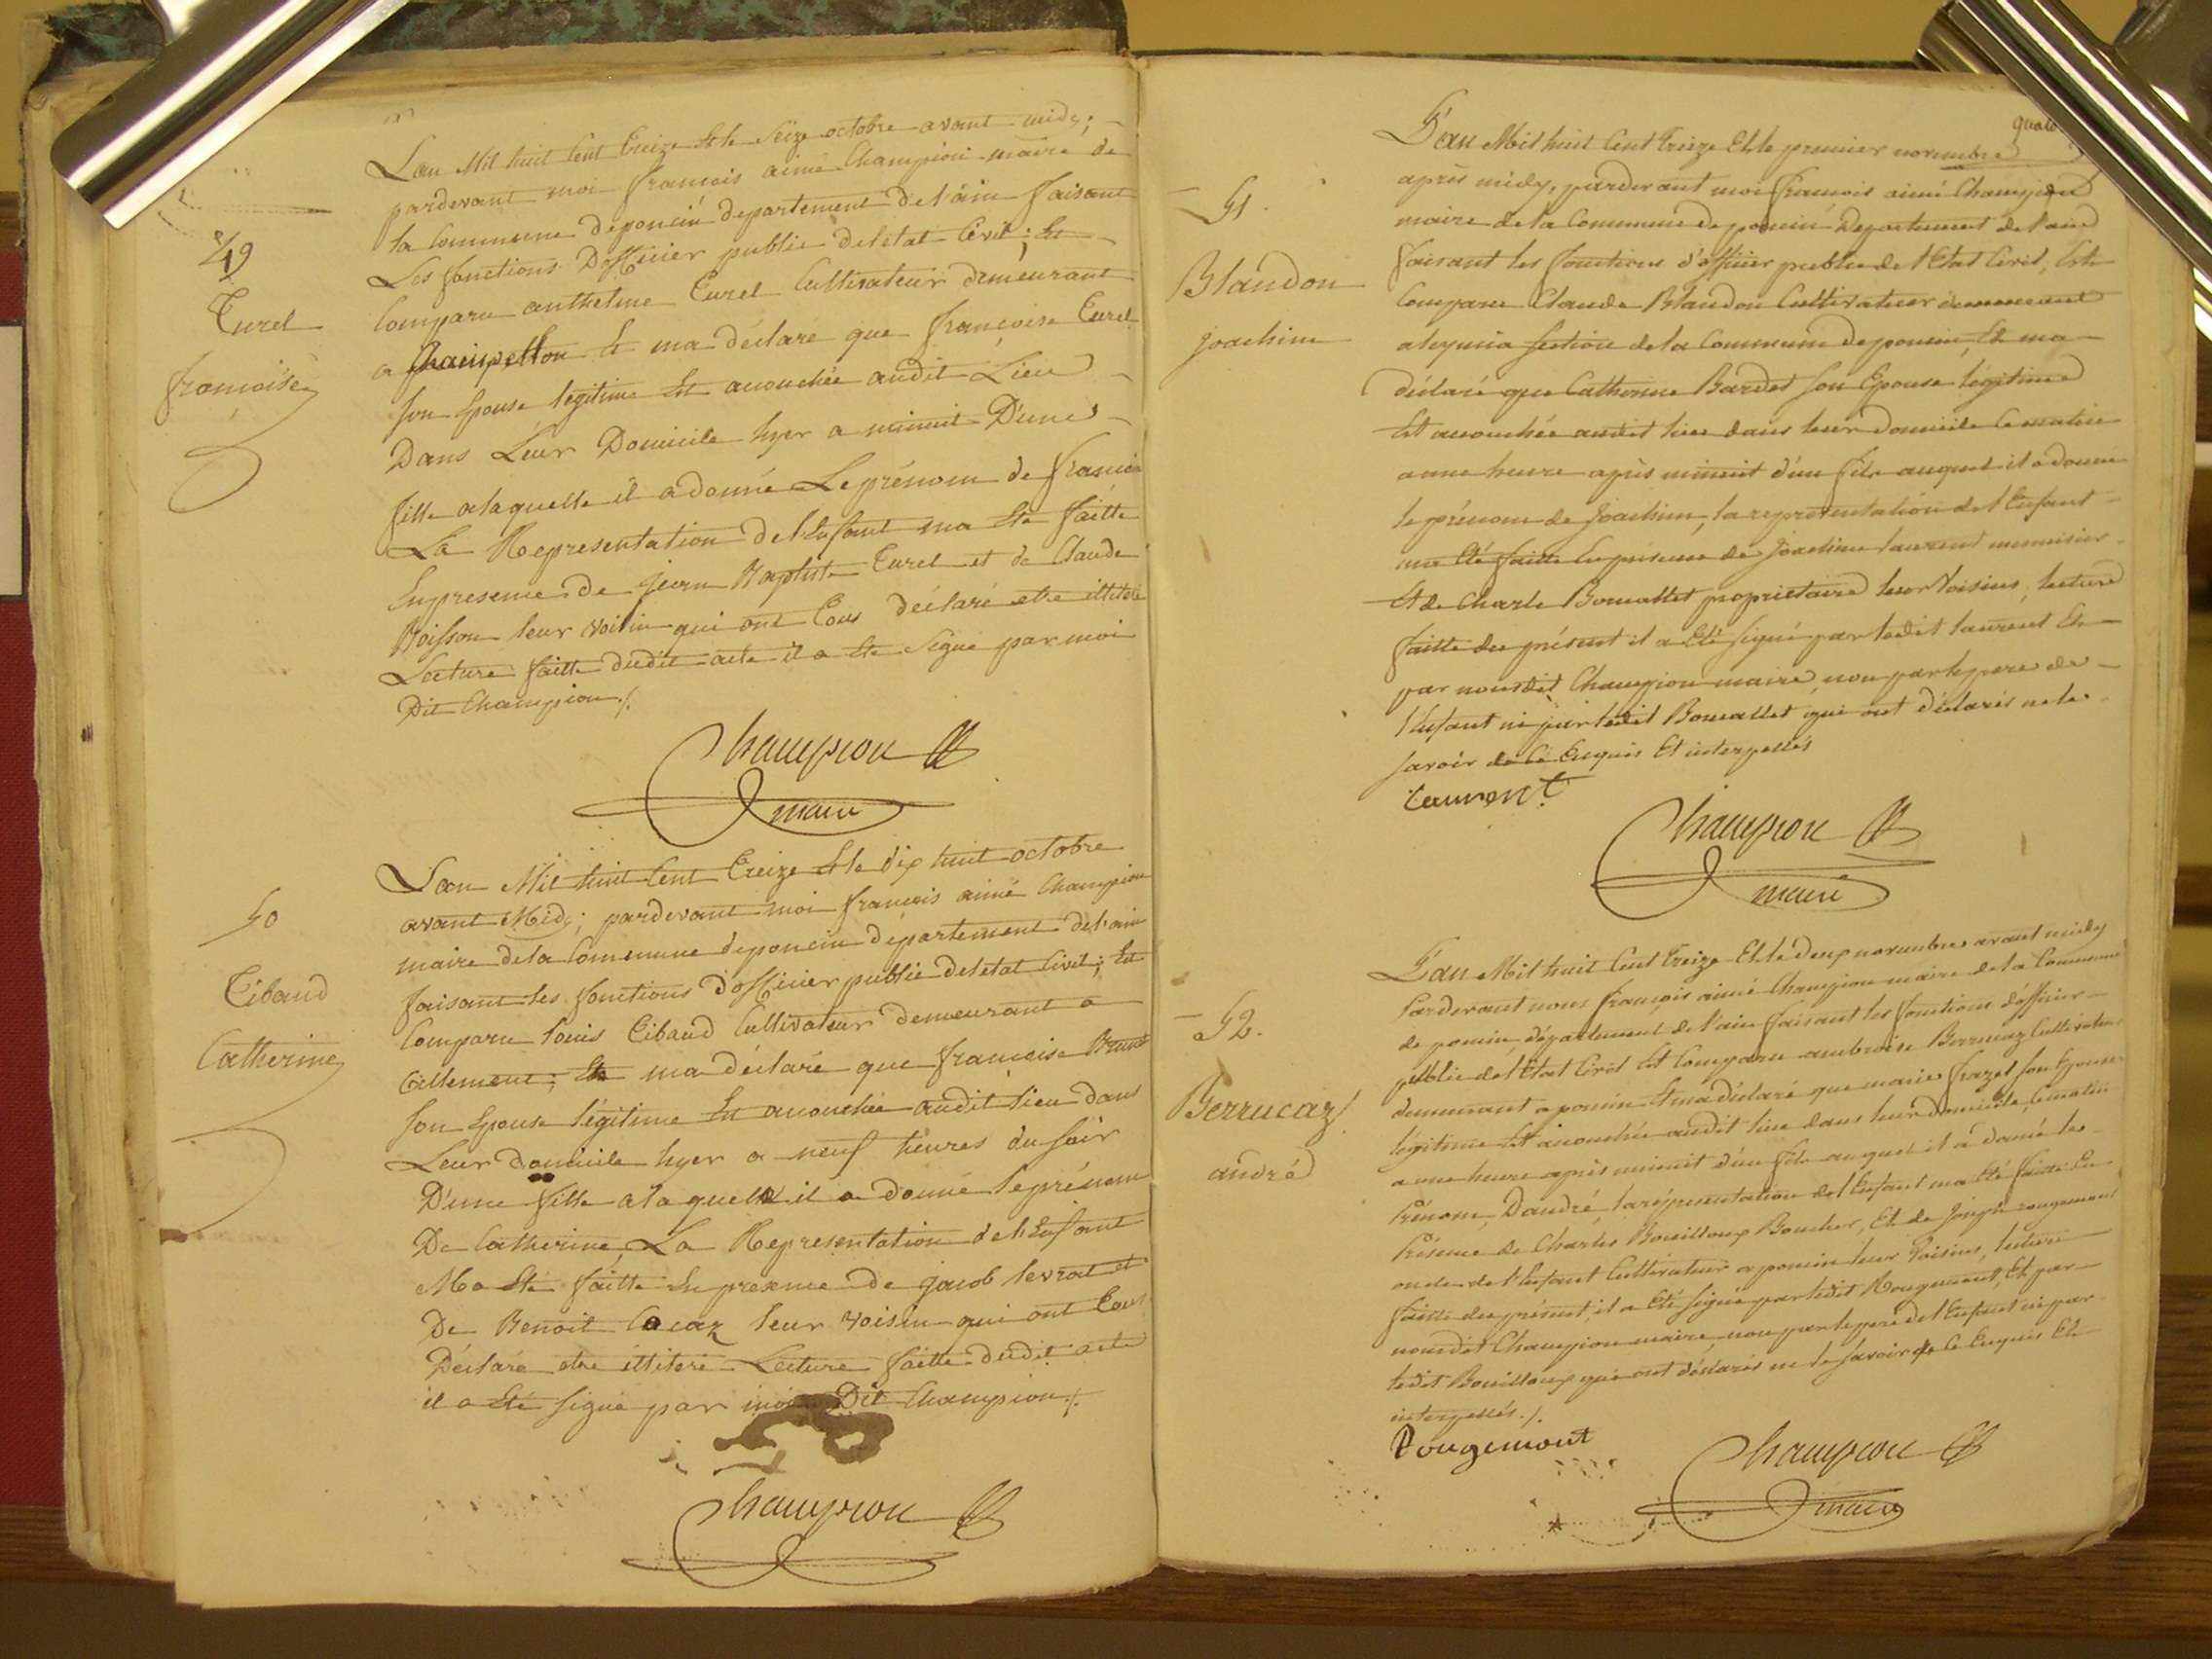 49
Turel
françoise
L'an Mil huit Cent Treize Et le Seize octobre avant midy;
pardevant moi françois aimé Champion maire de
la Commune deponcin departement de l'ain faisant
Les fonctions D'officier public deletat Civil; Est
Comparu anthelme Turel Cultivateur demeurant
a Champellon Et ma déclaré que françoise Turel
son Epouse légitime Est acouchée audit Lieu
Dans Leur Domicile hyer a minuit D'une
fille alaquelle il a donné Le prénom de françoise
La Representation de l'Enfant ma Ete faitte
En presence de jean Baptiste Turel et de Claude
Boisson leur voisin qui ont Tous déclaré etre illiteré
Lecture faitte dudit acte il a Ete Signé par moi
Dit Champion ./.
Champion
maire
50
Tibaud
Catherine
L'an Mil huit Cent Treize Et le dix huit octobre
avant Midy; pardevant moi françois aimé Champion
maire dela Commune deponcin departement del'ain
faisant les fonctions d'officier public deletat Civil; Est
Comparu louis Tibaud Cultivateur demeurant a
Allement; Et ma déclaré que françoise
son Epouse légitime Est acouchée audit lieu dans
Leur domicile hyer a neuf heures du soir
D'une fille alaquelle il a donne leprénom
De Catherine, La Representation de l'Enfant
Ma Eté faitte En presence de jacob levrat et
De Benoit leur voisin qui ont Tous
Déclaré etre illiteré Lecture faitte dudit acte
il a Eté signé par moi Dit Champion ./.
Champion
51.
Blandon
joachim
L'an Mil huit Cent Treize Et le premier novembre
après midy, pardevant moi françois aimé Champion
maire dela Commune de poncin Departement de l'ain
faisant les fonctions d'officier public de l'Etat Civil, Est
Comparu Claude Blandon Cultivateur demeurant
section dela Commune deponcin, Et ma
déclaré que Catherine Bardet son Epouse légitime
Est acouchée audit lieu dans leur domicile Cematin
a une heure après minuit d'un fils auquel il a donné
le prénom de Joachim, la representation de l'Enfant
ma Eté faitte En presence de Joachim laurent menuisier
Et de Charle Bouvallet proprietaire leur Voisins, lecture
faitte du présent il a Eté signé par ledit laurent Et
par nousdit Champion maire, non parlepere de
l'Enfant ni par ledit Bouvallet qui ont déclarés nele
savoir de Ce Enquis Et interpellés
Laurent
Champion
maire
52.
Berrucaz
andré
L'an Mil huit Cent Treize Et le deux novembre avant midy
Pardevant nous françois aimé Champion maire dela Commune
de poncin, département de l'ain faisant les fonctions d'officier
public de l'Etat Civil Est Comparu ambroise Berrucaz Cultivateur
demeurant a poncin Et ma déclaré que marie frazet son Epouse
légitime Est acouchée audit lieu dans leur domicile, Cematin
a une heure après minuit d'un fils auquel il a donné le
Prénom D'andré, la répresentation de l'Enfant ma Eté faitte En
Présence de Charles Bouilloux Boucher, Et de Joseph rougemont
oncle de l'Enfant Cultivateur a poncin leur Voisins, lecture
faitte du présent, il a Eté signé par ledit Rougemont, Et par
nousdit Champion maire, non par le pere de l'Enfant ni par
ledit Bouilloux qui ont déclarés ne le savoir de Ce Enquis Et
interpellés ./.
Rougemont
Champion
maire